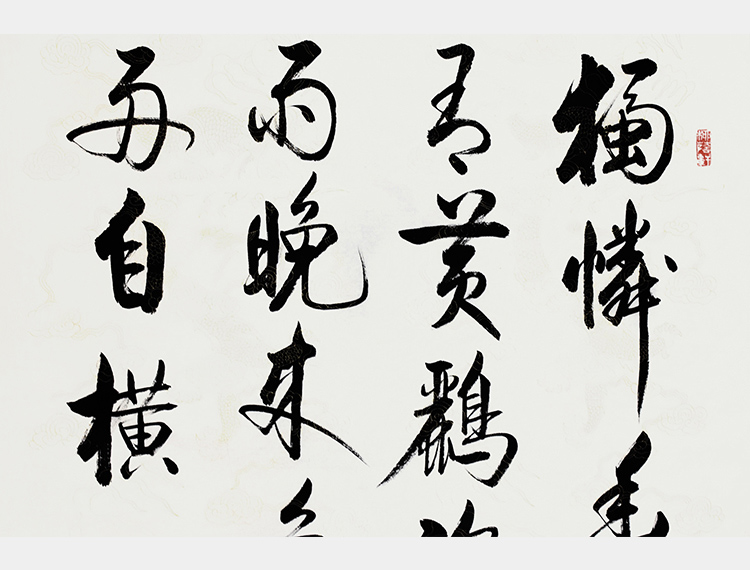 獨憐
有黃鸝
雨晚來
舟自橫